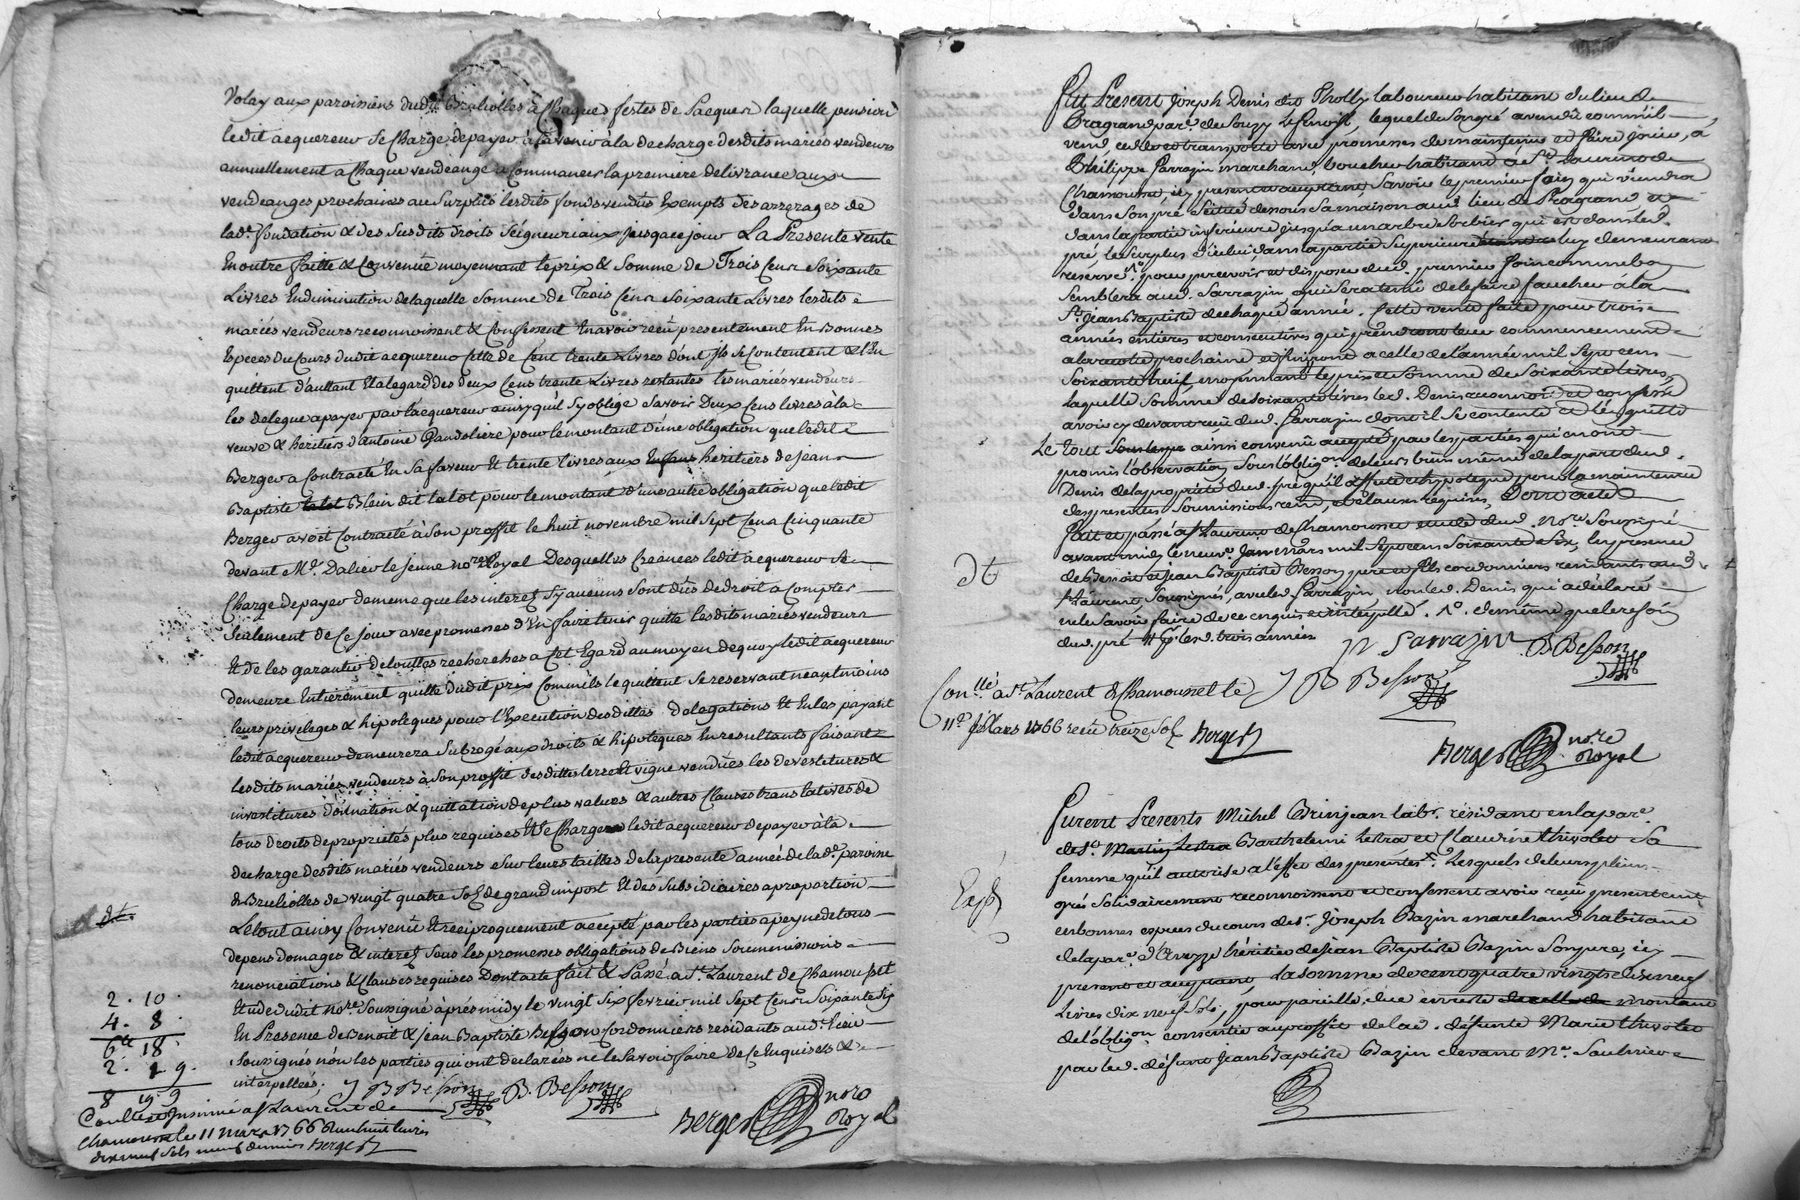 Volay aux paroissiens dudit Brulioles a Chaque festes de Pacques laquelle pension
ledit acquereur se Charge de payer a la venir à la decharge desdits mariés vendeurs
annuellement a Chaque vendange a Commancer la premiere delivrance aux
vendanges prochaines au surplus lesdits fonds vendus Exempts des arrerages de
lade. fondation & des susdits droits seigneuriaux jusqace jour La Presente vente
En outre faitte & Convenuë moyennant le prix & Somme de Trois Cens Soixante
Livres En diminution de laquelle Somme de Trois Cens Soixante Livres lesdits
mariés vendeurs reconnoissent & Confessent En avoir reçu presentement En Bonnes
Especes du Cours dudit acquereur Cette de Cent trente Livres dont ils se Contentent & l'En
quittent d'auttant Et alegard des deux Cens trente Livres restantes les mariés vendeurs
les delegue a payer par l'acquereur ainsy qu'il sy oblige Savoir Deux Cens livres à la
veuve & heritiers d'antoine Gandoliere pour le montant d'une obligation que ledit
Berger a Contracté En sa faveur Et trente livres aux Enfans heritiers de jean
Baptiste talot Blein dit talot pour le montant d'une autre obligation que ledit
Berger avoit Contracté à son proffit le huit novembre mil sept Cens Cinquante
devant Me. Dalier le jeune nore. Royal Desquelles Creances ledit acquereur se
Charge de payer de meme que les interets sy aucuns sont dûs de droit a Compter
seulement de Ce jour avec promesses d'En faire tenir quitte lesdits mariés vendeurs
Et de les garantir de touttes recherches a Cet Egard au moyen de quoy ledit acquereur
demeure Entierement quitte dudit prix Comm'ils le quittent se reservant neantmoins
leurs privileges & hipoteques pour l'Execution desdittes delegations Et En les payant
ledit acquereur demeurera Subrogé aux droits & hipoteques En resultants faisant
lesdits mariés vendeurs à son proffit desdittes terre Et vigne vendües les devestitures &
investitures d'émation & quittation de plus values & autres Clauses translatives de
tous droits de proprietés plus requises Et se Charge ledit acquereur de payer à la
decharge desdits mariés vendeurs sur leurs tailles de la presente année de lade. paroisse
de Brulioles de vingt quatre Sols de grand impost Et des Subsidiaires a proportion
Le tout ainsy Convenu Et reciproquement accepté par les parties a peyne de tous
depens domages & interets sous les promesses obligations de Biens Soummissions
renonciations & Clauses requises Dont acte fait & Passé à St. Laurent de Chamousset
Etude dudit nore. Soussigné après midy le vingt six fevrier mil sept Cens Soixante six
En Presence de Benoit & jean Baptiste Besson Cordonniers residants aud. lieu
Soussignés non les parties qui ont declarées ne le Savoir faire de Ce Enquises &
interpellées.
J B Besson B. Besson
Berger nore Royal
dt.
2. 10.
4. 8.
6lt 18.
2. 1 9.
8 19 9
Conlle. et Insinué a St Laurent de
Chamousset le 11 mars 1766 Reçu huit livres
dix neuf Sols neuf deniers Berger
Fut Present Joseph Denis dit Tholly laboureur habitant du lieu de
Pragrand par. de Souzy Lefenoist, lequel de son gré a vendu comm'il
vend, cede et transporte avec promesses de maintenir et faire jouir, a
Philippe Sarrazin marchand, boucher habitant a St. Laurent de
Chamousset, icy present et acceptant Savoir le premier foin qui viendra
dans son pré Situé dessous sa maison aud. lieu de Pragrand et
dans la partie inferieure jusqu'a un arbre Sorbier qui est dans led.
pré le Surplus d'icelui dans la partie Superieure luy demeurant
reservé, pour percevoir et disposer dud. premier foin comme bon
Semblera aud. Sarrazin qui sera tenu de le faire faucher à la
St. Jean Baptiste de chaque année. Cette vente faite pour trois
années entieres et consecutives qui prendront leur commencement
a la recolte prochaine et finiront a celle de l'année mil Sept cens
Soixante huit, moyennant le prix et Somme de Soixante livres,
laquelle Somme de Soixante livres led. Denis reconnoit et confesse
avoir cy devant reçu dud. Sarrazin dont il Se contente et l'en quitte
Le tout ainsi convenu accepté par les parties qui en ont
promis l'observation Sous l'oblig.on de leurs biens même de la part dud.
Denis de la proprieté dud. pré qu'il affecte et hypoteque pour la maintenue
des presentes, Soumissions, renon. et clauses requises, Dont acte
Fait et passé a St Laurent de Chamousset etude dud. nore. Soussigné
avant midy le neuf. mars mil Sept cens Soixante Six, En presence
de Benoit et Jean Baptiste Besson pere et fils cordonniers residants aud.
St Laurent Soussignés, avec led. Sarrazin, non led. Denis qui a déclaré
ne le Savoir faire de ce enquis et interpellé.
dud. pré led. trois années
dt
P. Sarrazin B. Besson
J B Besson
Conllé. a St. Laurent de Chamousset le
11e. Mars 1766 reçu treize Sols Berger
Berger nore Royal
Furent Presents Michel Brinjean labr. résidant en la par.
de St. Martin Lestra Barthelemi Lestra et Claudine thivolet Sa
femme qu'il autorise a l'effet des presentes. Lesquels de leurs pleins
grés Solidairement reconnoissent et confessent avoir reçu presentement
en bonnes especes du cours de Sr. Joseph Bazin marchand habitant
de la par. d'Aveyze heritier de Jean Baptiste Bazin Son pere, icy
present et acceptant La Somme de cent quatre vingts dix neuf
Livres dix neuf Sols, pour pareille, due en reste montant
de l'oblig.on consentie au proffit de lad. défunte Marie thivolet
par led. défunt Jean Baptiste Bazin devant Me. Saulnier
Exp.